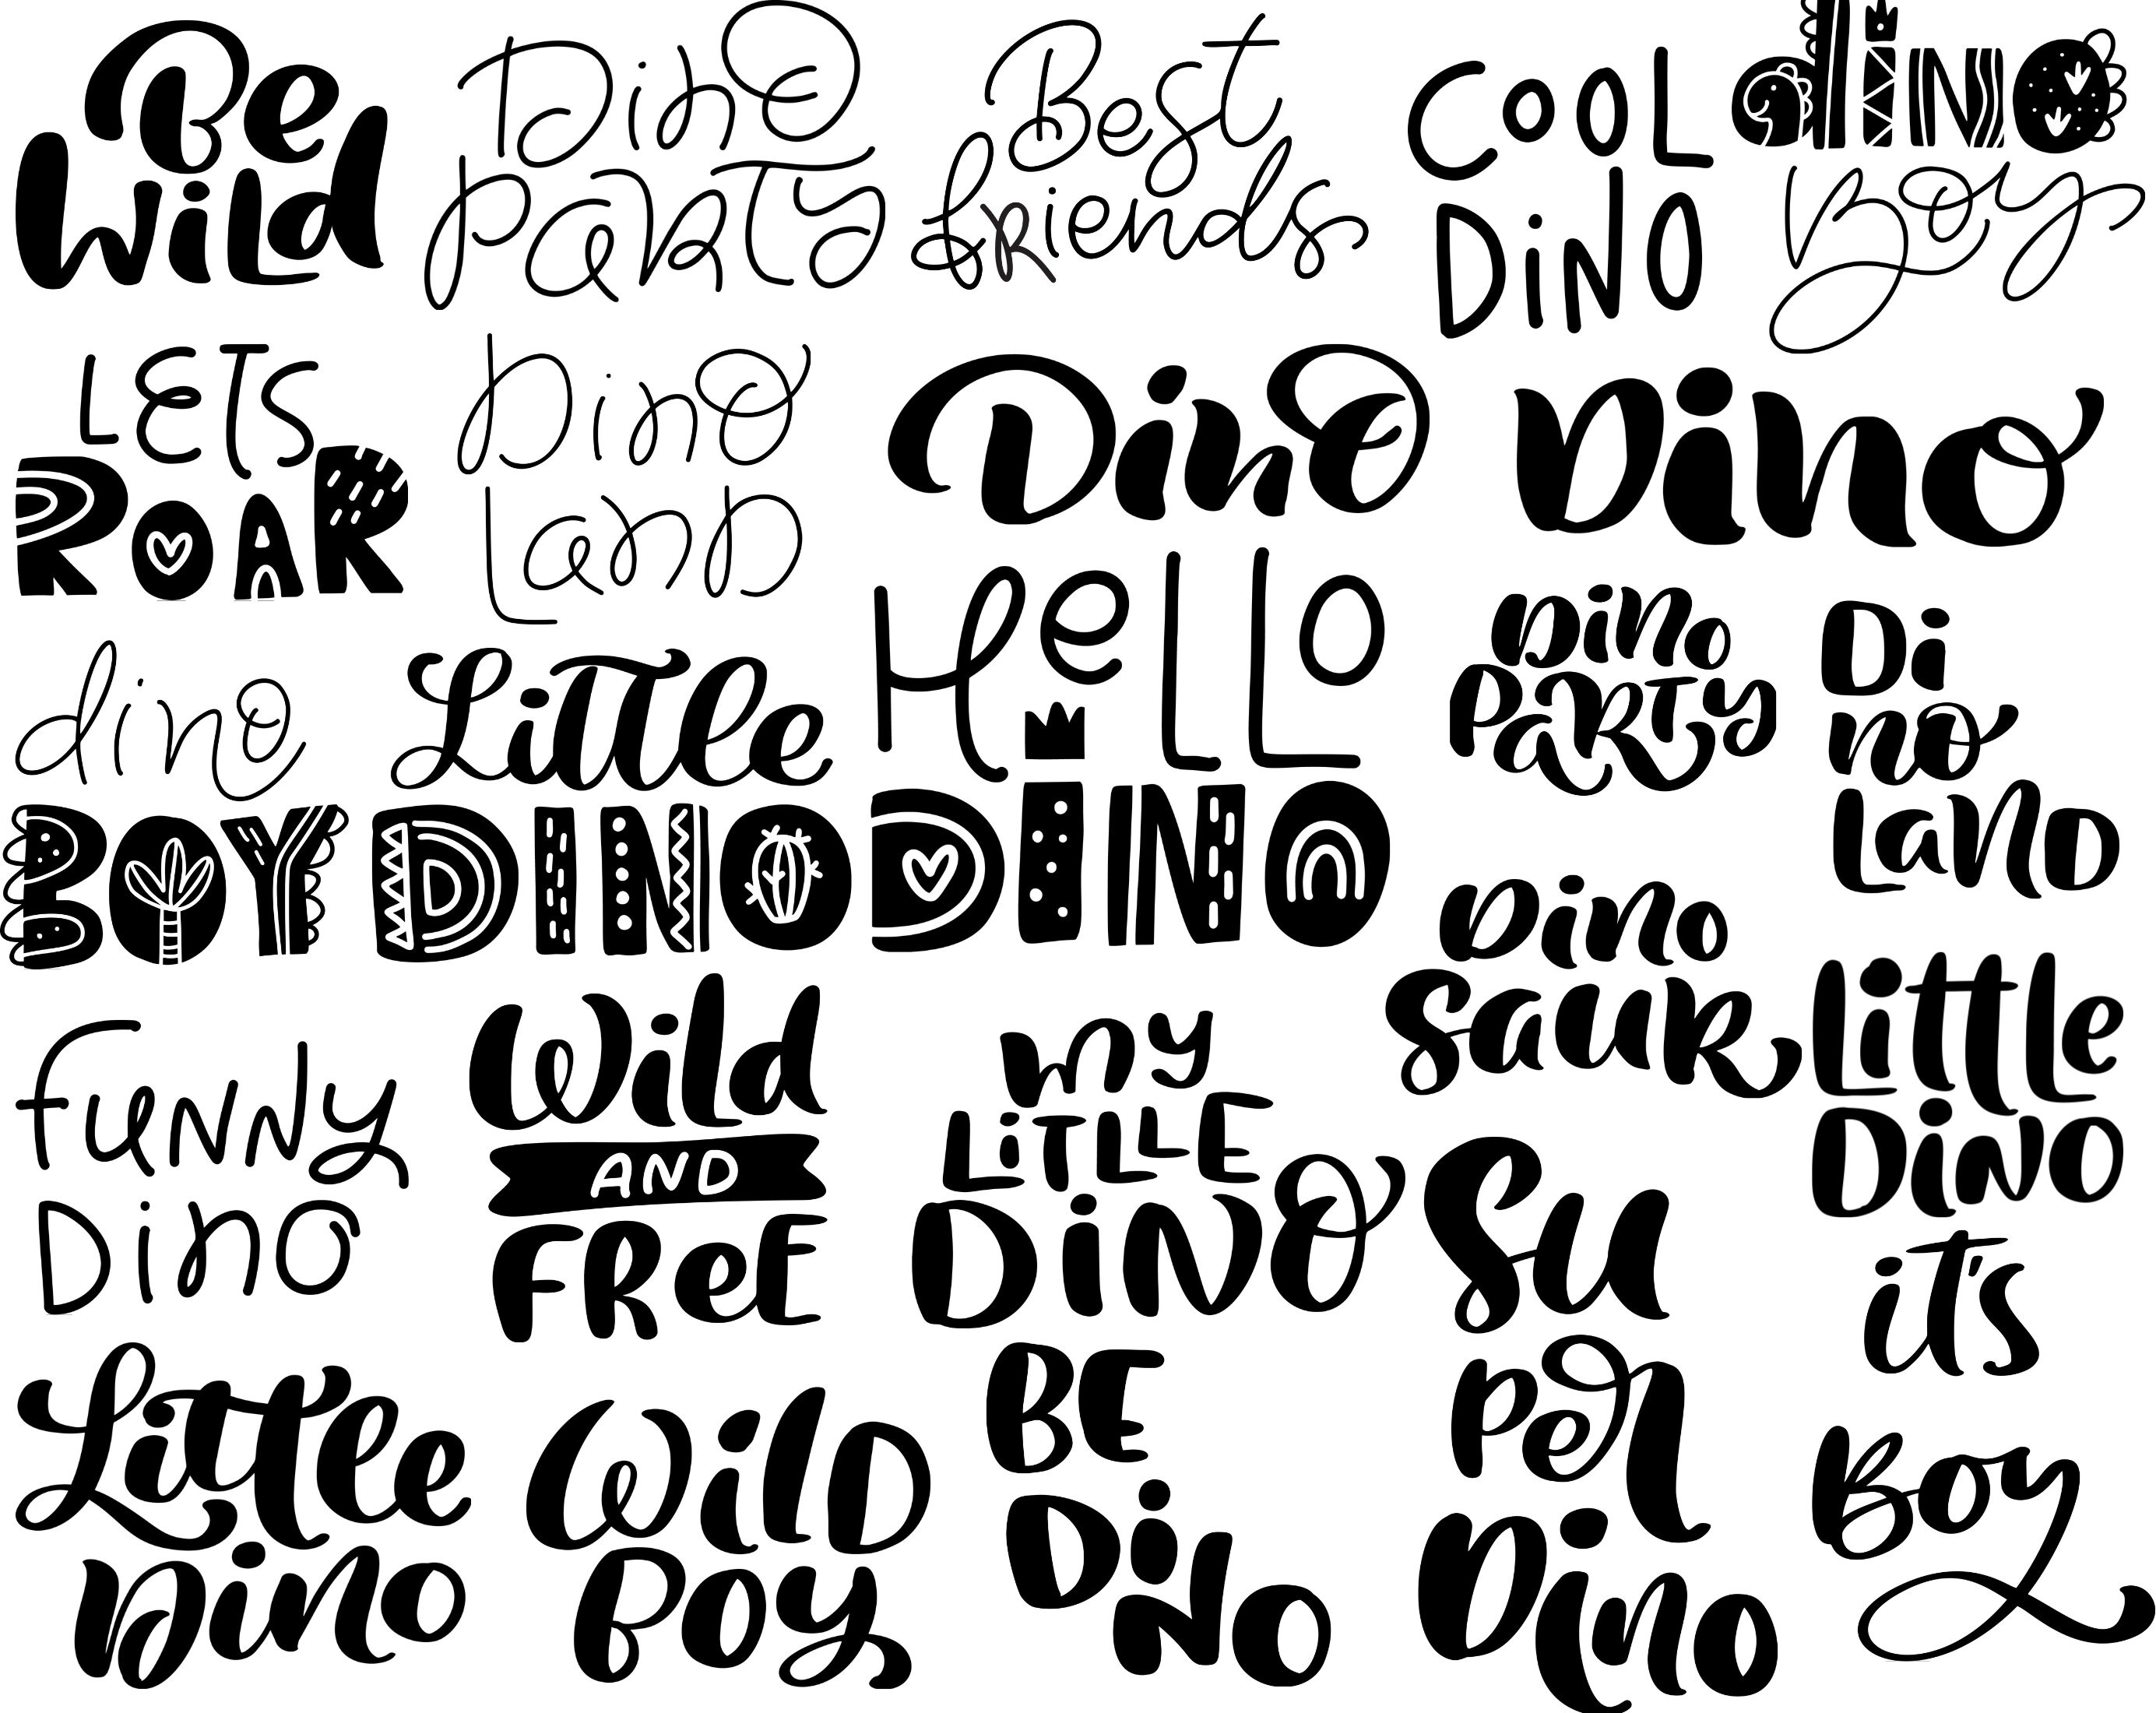 Be
Wild
Dino
party
Best
friends
COOL
DiNO
diNO
Boy
LETS
ROAR
Dino
Land
Dino
Dino
dino
Little
Hello
Dino
Party
Di
no
Land
BOYS
DINO
DINO
Dino
Saur
Funny
Dino
Wild
AND
FReE
my
LiTTLE
DiNO
Su
per
Dino
Little
Dino
it's
Boy
Little
Dino
Wild
Boy
BE
DiNo